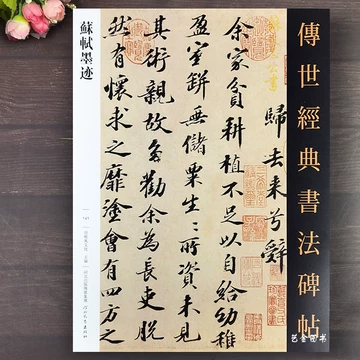 傳世經典書法碑帖
歸去来兮辭
余家貧耕植不足以自給幼稚
盈室缾無儲粟生〻所資未見
其術親故多勸余為長吏脫
然有懷求之靡塗會有四方之
蘇軾墨迹